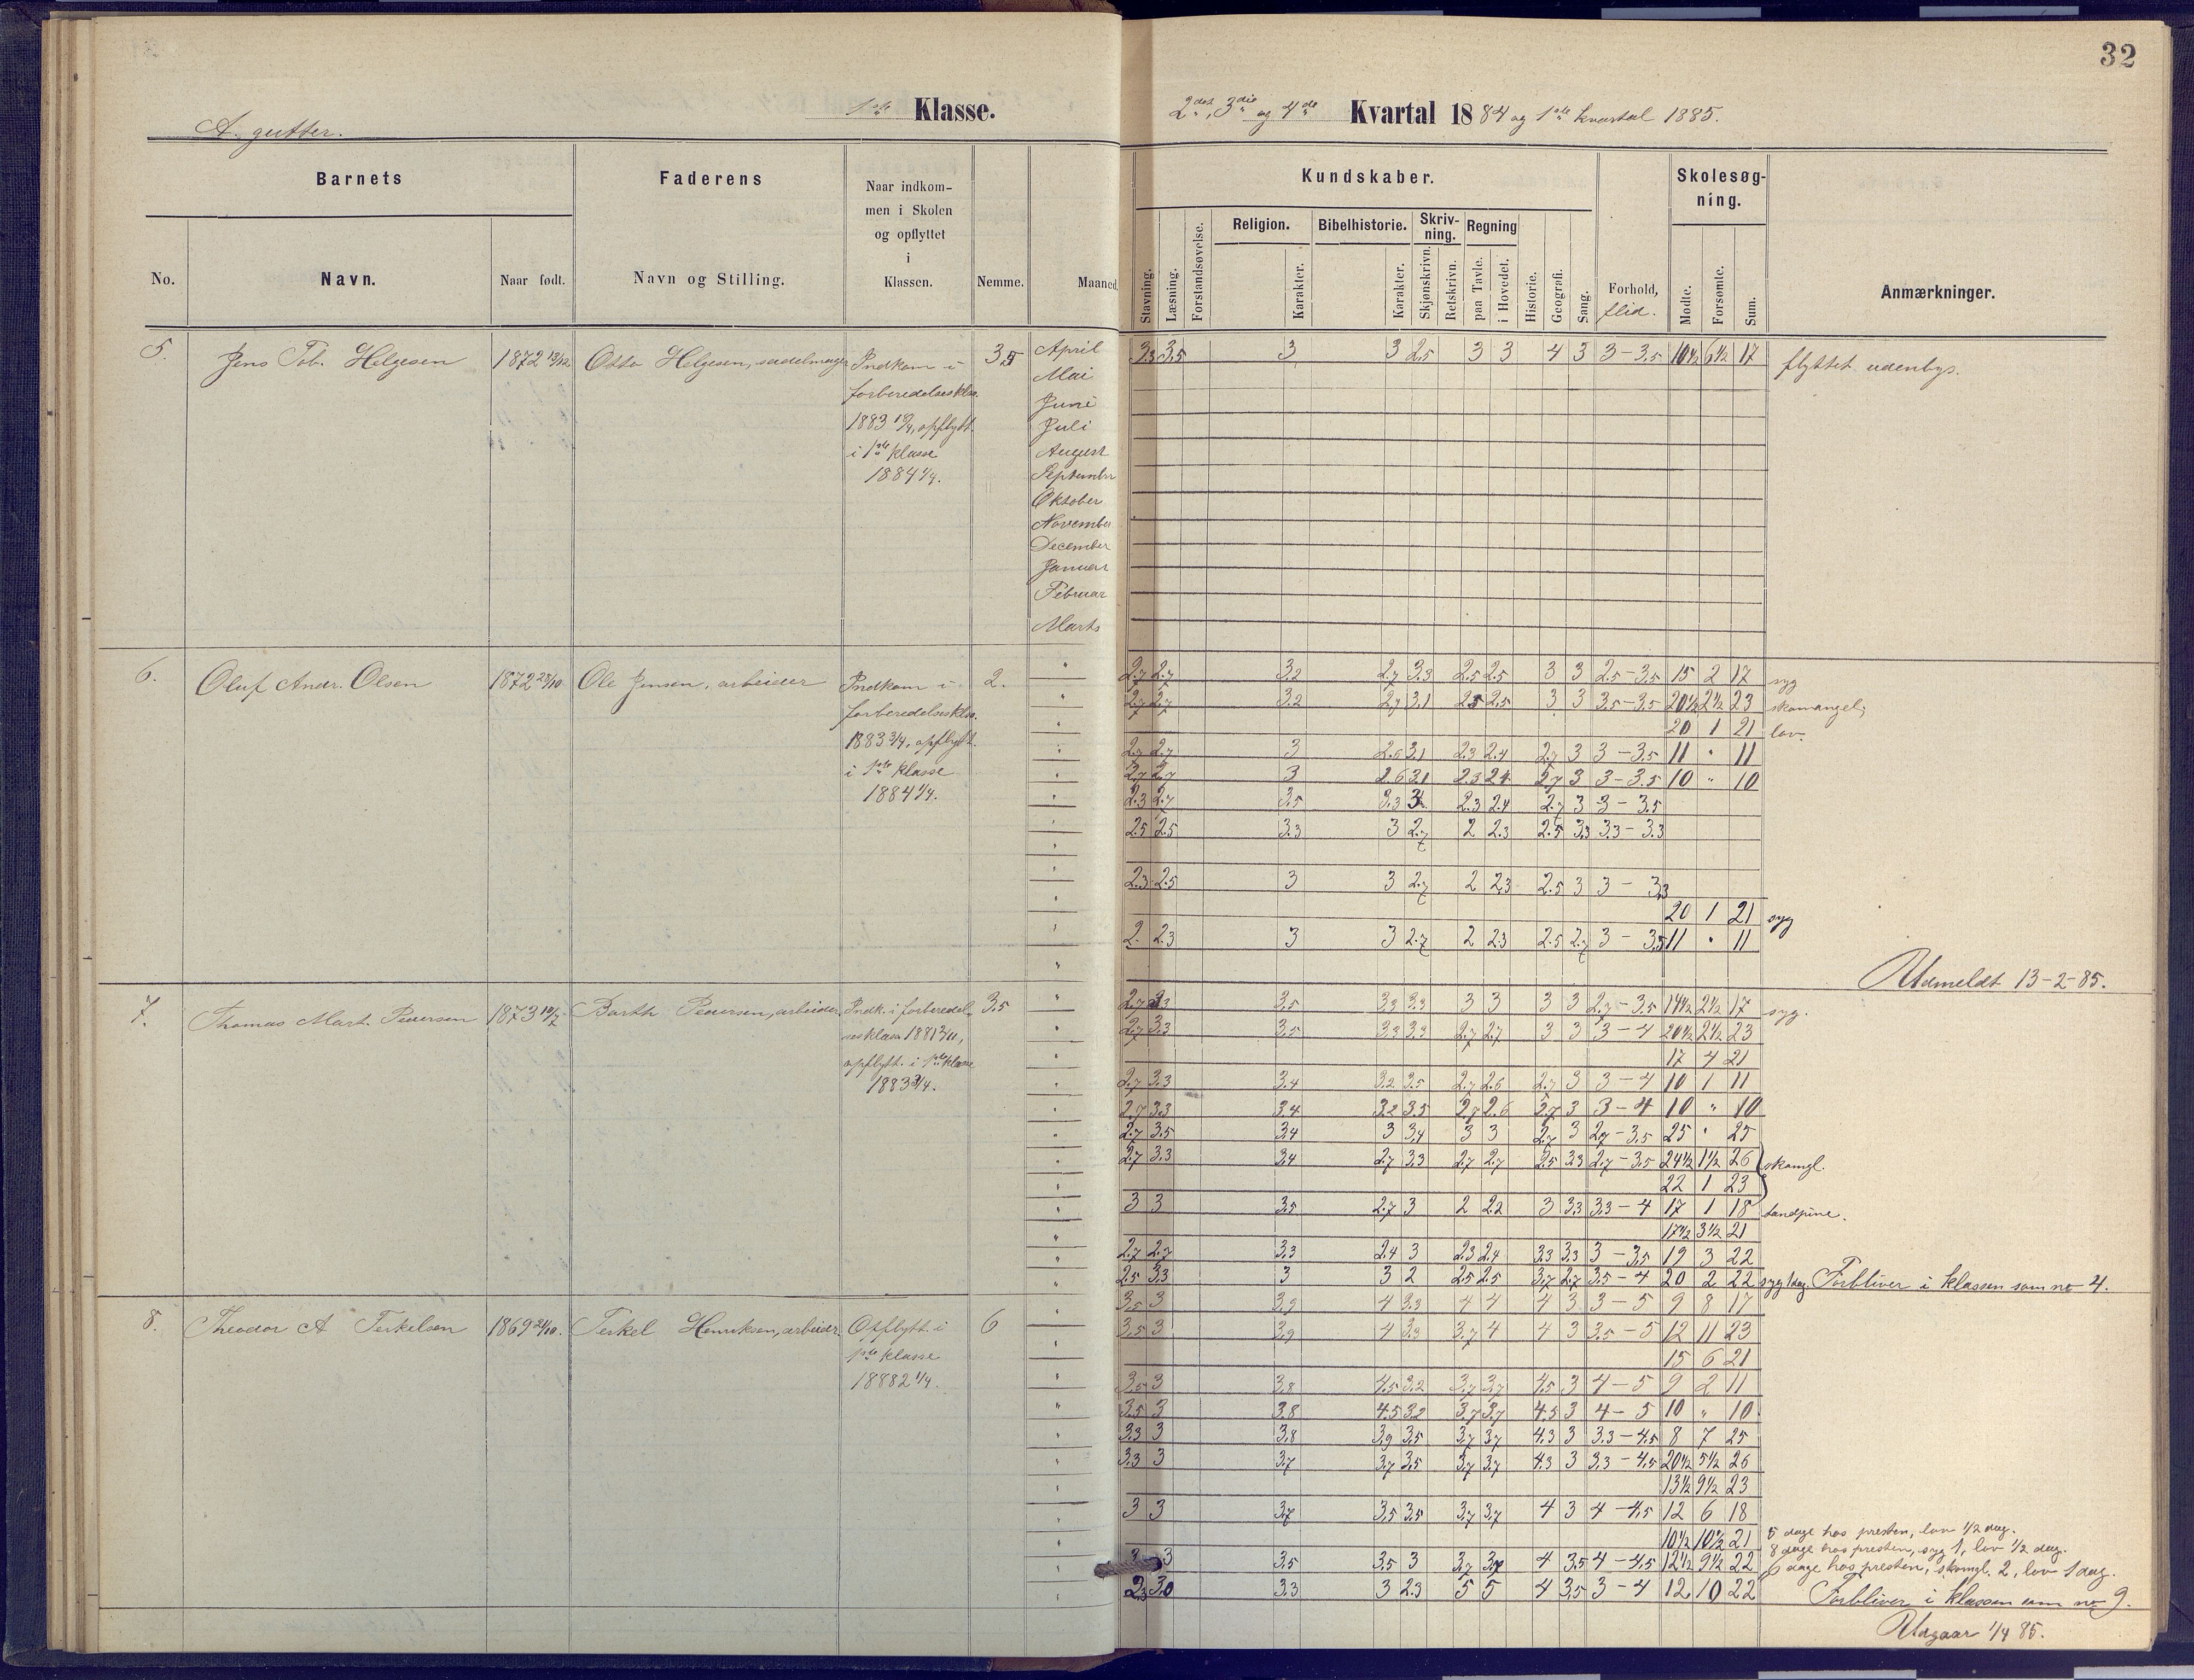 32
A. gutter.
1ste Klasse.
2det, 3die og 4de Kvartal 1884 og 1ste kvartal 1885.
Barnets
Faderens
Naar indkom-
men i Skolen
og opflyttet
i
Klassen.
Nemme.
Maaned.
Kundskaber.
Skolesøg-
ning.
Anmærkninger.
No.
Navn.
Naar født.
Navn og Stilling.
Stavning.
Læsning.
Forstandsøvelse.
Religion.
Karakter.
Bibelhistorie.
Karakter.
Skriv-
ning.
Skjønskrivn.
Retskrivn.
Regning
paa Tavle.
i Hovedet.
Historie.
Geografi.
Sang.
Forhold,
flid.
Mødte.
Forsømte.
Sum.
5. Jens Tob. Helgesen 1872 13/12 Otto Helgesen, sadelmager Indkom i 3.5 April 3.3 3.5 3 3 2.5 3 3 4 3 3-3.5 10½ 6½ 17 flyttet udenbys.
forberedelseskls. Mai
Juni
opflytt. Juli
i 1ste klasse August
1884 1/4. September
Oktober
November
December
Januar
Februar
Marts
6. Oluf Andr. Olsen 1872 28/10 Ole Jensen, arbeider Indkom i 2. 2.7 2.7 3.2 2.7 3.3 2.5 2.5 3 3 2.5-3.5 15 2 17 syg
forberedelseskls. 2.7 2.7 3.2 2.7 3.1 2.5 2.5 3 3 3.5-3.5 20½ 2½ 23 skomangel,
20 1 21 lov.
1883 3/4, opflytt. 2.7 2.7 3 2.6 3.1 2.3 2.4 2.7 3 3-3.5 11 " 11
i 1ste klasse 2.7 2.7 3 2.6 3.1 2.3 2.4 2.7 3 3-3.5 10 " 10
1884 1/4. 2.3 2.7 3.5 3.3 2.3 2.4 2.7 3 3-3.5
2.5 2.5 3.3 3 2.7 2 2.3 2.5 3.3 3.3-3.3
2.3 2.5 3 3 2.7 2 2.3 2.5 3 3-3.3
20 1 21 syg
2. 2.3 3 3 2.7 2 2.3 2.5 2.7 3-3.5 11 " 11
Udmeldt 13-2-85.
7. Thomas Mart. Pedersen 1873 10/7 Barth Pedersen, arbeider. Indk. i forberedel- 3.5 2.7 3.3 3.5 3.3 3.3 3 3 3 3 2.7-3.5 14½ 2½ 17 syg.
sesklasse 1881 2.7 3.3 3.5 3.3 3.3 2.7 2.7 3 3 3-4 20½ 2½ 23
opflytt. i 1ste klasse 17 4 21
1883 3/4. 2.7 3.3 3.4 3.2 3.5 2.7 2.6 2.7 3 3-4 10 1 11
2.7 3.3 3.4 3.2 3.5 2.7 2.6 2.7 3 3-4 10 " 10
2.7 3.5 3.4 3 3.4 3 3 2.7 3 2.7-3.5 25 " 25
2.7 3.3 3.4 2.7 3.3 2.7 2.7 2.5 3.3 2.7-3.5 24½ 1½ 26 skomgl.
22 1 23
3 3 3.5 2.7 3 2 2.2 3 3.3 3.3-4 17 1 18 tandpine.
17½ 3½ 21
2.7 2.7 3.3 2.4 3 2.3 2.4 3.3 3.3 3-3.5 19 3 22
2.5 3.3 3 3 2 2.5 2.5 3.7 2.7 3.5-4 20 2 22 syg 1 dag. Forbliver i klassen som no 4.
8. Theodor A Terkelsen 1869 21/10. Terkel Henriksen, arbeider Opflytt. i 6 3.5 3 3.9 4 3.3 4 4 4 3 3-5 9 8 17
1ste klasse 3.5 3 3.9 4 3.3 3.7 4 4 3 3.5-5 12 11 23
15 6 21
18882 1/4. 3.5 3 3.8 4.5 3.2 3.7 3.7 4.5 3 4-5 9 2 11
3.5 3 3.8 4.5 3.2 3.7 3.7 4.5 3 4-5 10 " 10
3.3 3 3.8 3.9 3.5 3.7 3.7 4.3 3 3.3-4.5 8 7 25
3.3 3 3.7 3.7 3.5 3.7 3.7 4.3 3 3.3-4.5 20½ 5½ 26
13½ 9½ 23
3 3 3.7 3.5 3.5 3.7 3.7 4 3 4-4.5 12 6 18
10½ 10½ 21 5 dage hos presten, lov 1/2 dag.
8 dage hos presten, syg 1, lov 1/2 dag.
3 3 3.5 3.5 3 3.7 3.7 4 3.5 4-4.5 12½ 9½ 22 6 dage hos presten, skomgl. 2, lov 1 dag.
2.3 3.0 3.3 3 2.3 5 5 4 3.5 3-4 12 10 22 Forbliver i klassen som no 9.
Udgaar 1/4 85.